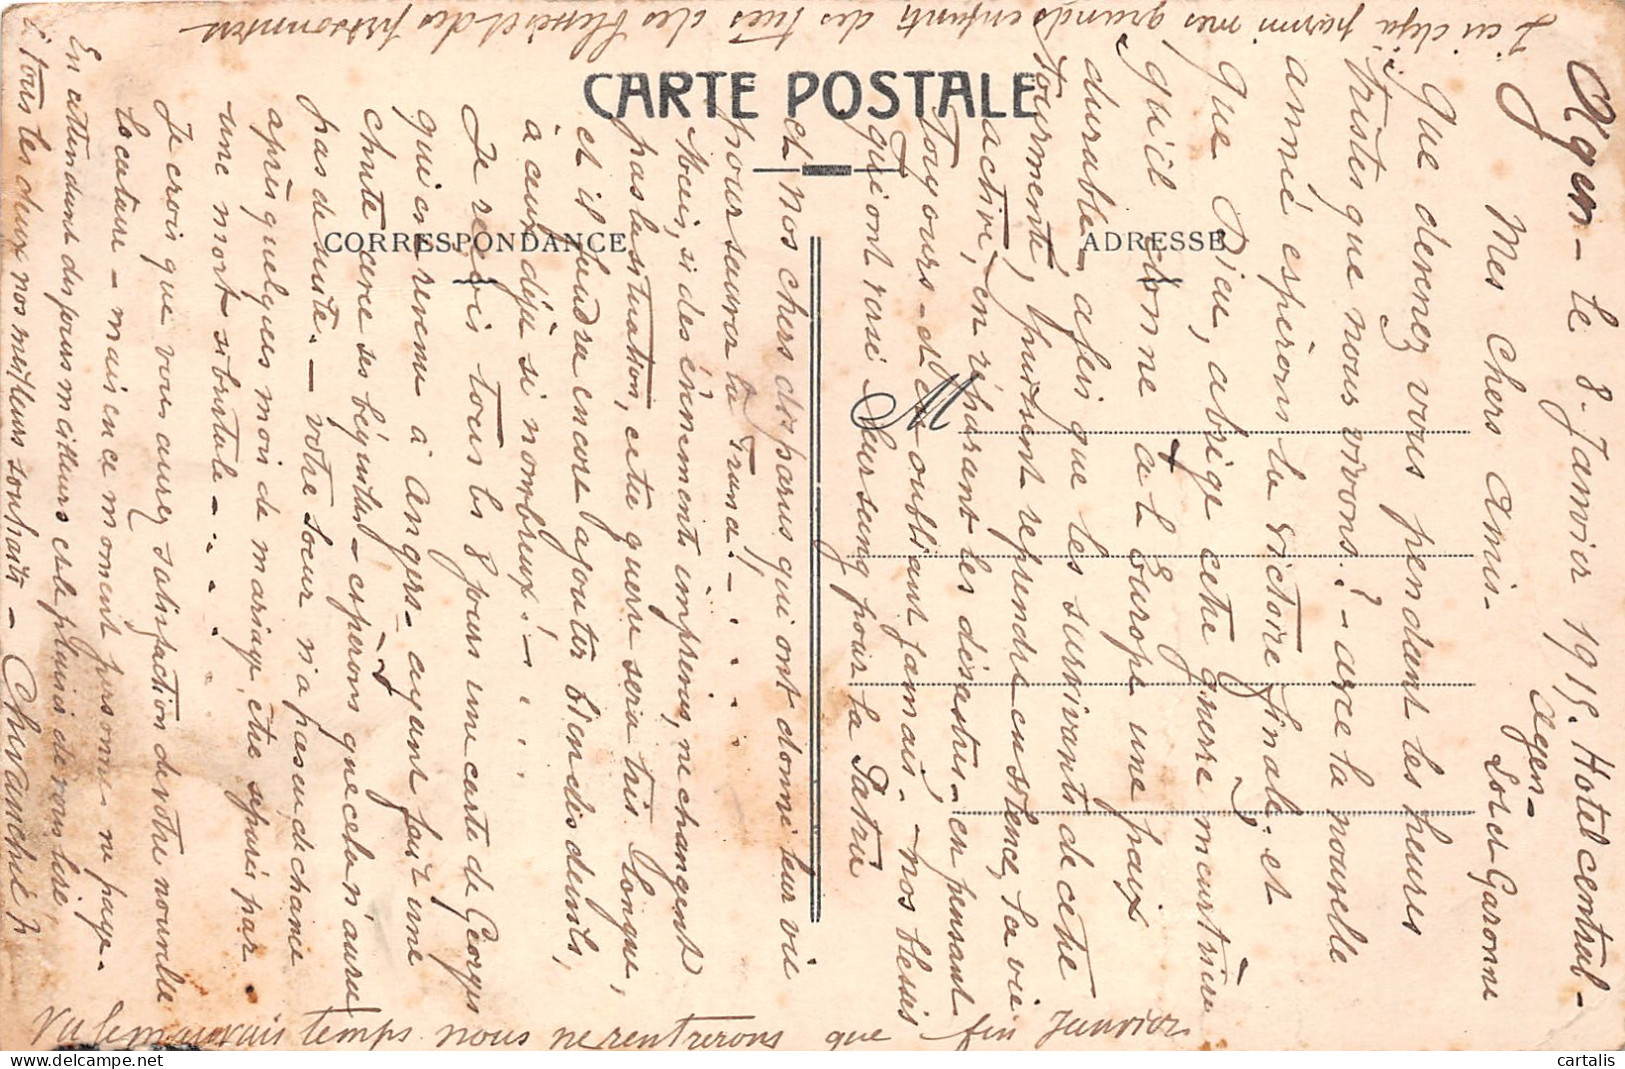 CARTE POSTALE
CORRESPONDANCE
ADRESSE
M
Agen - le 8 Janvier 1915. Hotel central -
Agen -
Lot et Garonne
Mes chers amis -
Que devenez vous pendant les heures
tristes que nous vivons? - avec la nouvelle
année espérons la victoire finale. et
que Dieu, abrège cette guerre meurtrière
qu'il donne à l'Europe une paix
durable, afin que les survivants de cette
tourmente, puissent reprendre, la vie
active, en réparant les désastres - en pensant
toujours - et n'oubliant jamais - nos
qui ont versé leur sang pour la Patrie
et nos chers disparus qui ont donné leur vie
pour sauver la France! -
Mais, si des événements imprévus, ne changent
pas la situation, cette guerre sera très longue,
et il faudra encore ajouter bien des deuils,
à ceux déjà si nombreux! -
Je reçois tous les 8 jours une carte de Georges
qui est revenu à Angers - ayant fait une
chute avec ses béquilles - espérons que cela n'aura
pas de suite. - votre soeur n'a pas eu de chance
après quelques mois de mariage, être séparés par
une mort si brutale - . .
Je crois que vous aurez satisfaction de votre nouvelle
locataire - mais en ce moment personne ne paye -
En attendant des jours meilleurs et le plaisir de vous lire,
à tous les deux nos meilleurs souhaits -
J'ai déjà parmi mes grands enfants des tués des blessés et des prisonniers
Vu le mauvais temps nous ne rentrerons que fin Janvier
cartalis